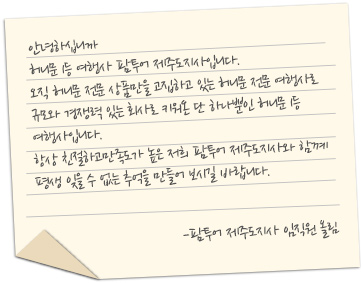 안녕하십니까
허니문 1등 여행사 팜투어 제주도지사입니다.
오직 허니문 전문 상품만을 고집하고 있는 허니문 전문 여행사로
규모와 경쟁력 있는 회사로 키워온 단 하나뿐인 허니문 1등
여행사입니다.
항상 친절하고만족도가 높은 저희 팜투어 제주도지사와 함께
평생 잊을 수 없는 추억을 만들어 보시길 바랍니다.
-팜투어 제주도지사 임직원 올림